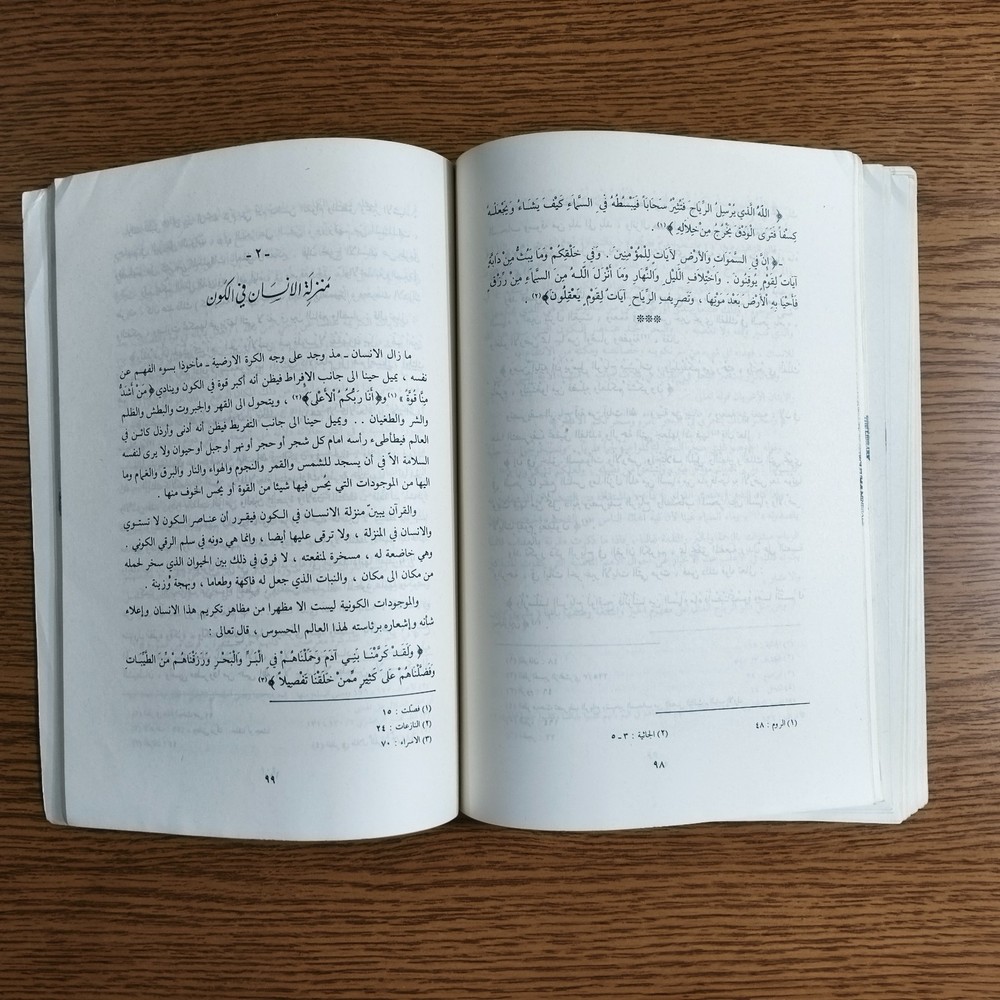 ﴿ اللهُ الَّذي يُرْسِلُ الرِّيَاحَ فَتُثيرُ سَحَاباً فَيَبْسُطُهُ في السَّمَاءِ كَيْفَ يَشَاءُ وَيَجْعَلُهُ
كِسَفاً فَتَرَى الْوَدْقَ يَخْرُجُ مِنْ خِلَالِهِ ﴾(١) .
ـ ﴿إنَّ في السَّمٰوَاتِ وَالأَرْضِ لآيَاتٍ لِلْمُؤْمِنِينَ . وَفي خَلْقِكُمْ وَمَا يَبُثُّ مِنْ دَابَّةٍ
آيَاتٌ لِقَوْمٍ يُوقِنُونَ . وَاخْتِلافِ اللَّيْلِ وَالنَّهَارِ وَمَا أنْزَلَ اللهُ مِنَ السَّمَاءِ مِنْ رِزْقٍ
فَأحْيَا بِهِ الأرْضَ بَعْدَ مَوْتِهَا ، وَتَصْرِيفِ الرِّيَاحِ آيَاتٌ لِقَوْمٍ يَعْقِلُونَ﴾(٢) .
***
(١) الروم : ٤٨
(٢) الجاثية : ٣ - ٥
٩٨
- ٢ -
منزلة الانسان في الكون
ما زال الانسان ـ مذ وجد على وجه الكرة الارضية ـ مأخوذا بسوء الفهم عن
نفسه ، يميل حينا الى جانب الإفراط فيظن أنه أكبر قوة في الكون وينادي ﴿ مَنْ أشَدُّ
مِنَّا قُوَّةً ﴾(١) و﴿ أنَا رَبُّكُمُ الأعْلَى﴾(٢) ، ويتحول الى القهر والجبروت والبطش والظلم
والشر والطغيان . . ويميل حينا الى جانب التفريط فيظن أنه أدنى وأرذل كائن في
العالم فيطاطىء رأسه امام كل شجر أو حجر او نهر او جبل أو حيوان ولا يرى لنفسه
السلامة الاّ في أن يسجد للشمس والقمر والنجوم والهواء والنار والبرق والغمام وما
اليها من الموجودات التي يحس فيها شيئا من القوة أو يحُس الخوف منها .
والقرآن يبينّ منزلة الانسان في الكون فيقرر أن عناصر الكون لا تستوي
والانسان في المنزلة ، ولا ترقى عليها أيضا ، وانما هي دونه في سلم الرقي الكوني .
وهي خاضعة له ، مسخرة لمنفعته ، لا فرق في ذلك بين الحيوان الذي سخر لحمله
من مكان الى مكان ، والنبات الذي جعل له فاكهة وطعاما ، وبهجة وُزينة .
والموجودات الكونية ليست الا مظهرا من مظاهر تكريم هذا الانسان وإعلاء
شأنه وإشعاره برئاسته لهذا العالم المحسوس ، قال تعالى :
﴿ وَلَقَدْ كَرَّمْنَا بَنِي آدَمَ وَحَمَلْنَاهُمْ فِي الْبَرِّ وَالْبَحْرِ وَرَزَقْنَاهُمْ مِّنَ الطَّيِّبَاتِ
وَفَضَّلْنَاهُمْ عَلَى كَثِيْرٍ مِّمَّنْ خَلَقْنَا تَفْضِيلاً ﴾(٣)
(١) فصّلت : ١٥
(٢) النازعات : ٢٤
(٣) الاسراء : ٧٠
٩٩